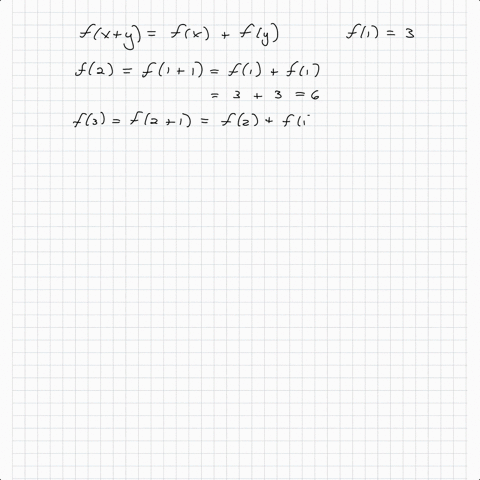 f(x+y) = f(x) + f(y) f(1) = 3
f(2) = f(1+1) = f(1) + f(1)
= 3 + 3 = 6
f(3) = f(2+1) = f(2) + f(1